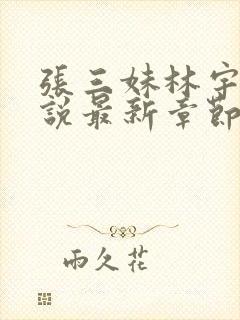 張三妹林宇
說最新章節
雨久花